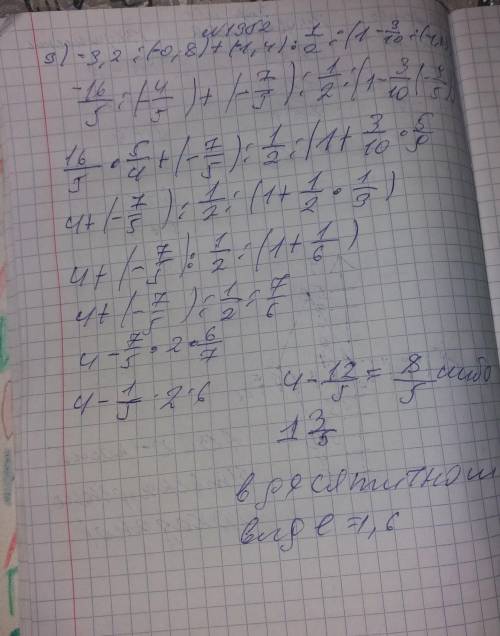 №1962
9) -3,2 : (-0,8) + (-1,4) : 1/2 : (1 - 3/10 :
-16/5 : (-4/5) + (-7/5) : 1/2 : (1 - 3/10
16/5 · 5/4 + (-7/5) : 1/2 : (1 + 3/10 · 5/9
4 + (-7/5) : 1/2 : (1 + 1/2 · 1/3)
4 + (-7/5) : 1/2 : (1 + 1/6)
4 + (-7/5) : 1/2 : 7/6
4 - 7/5 · 2 · 6/7
4 - 1/5 · 2 · 6
4 - 12/5 = 8/5 либо
1 3/5
в десятитном
виде = 1,6